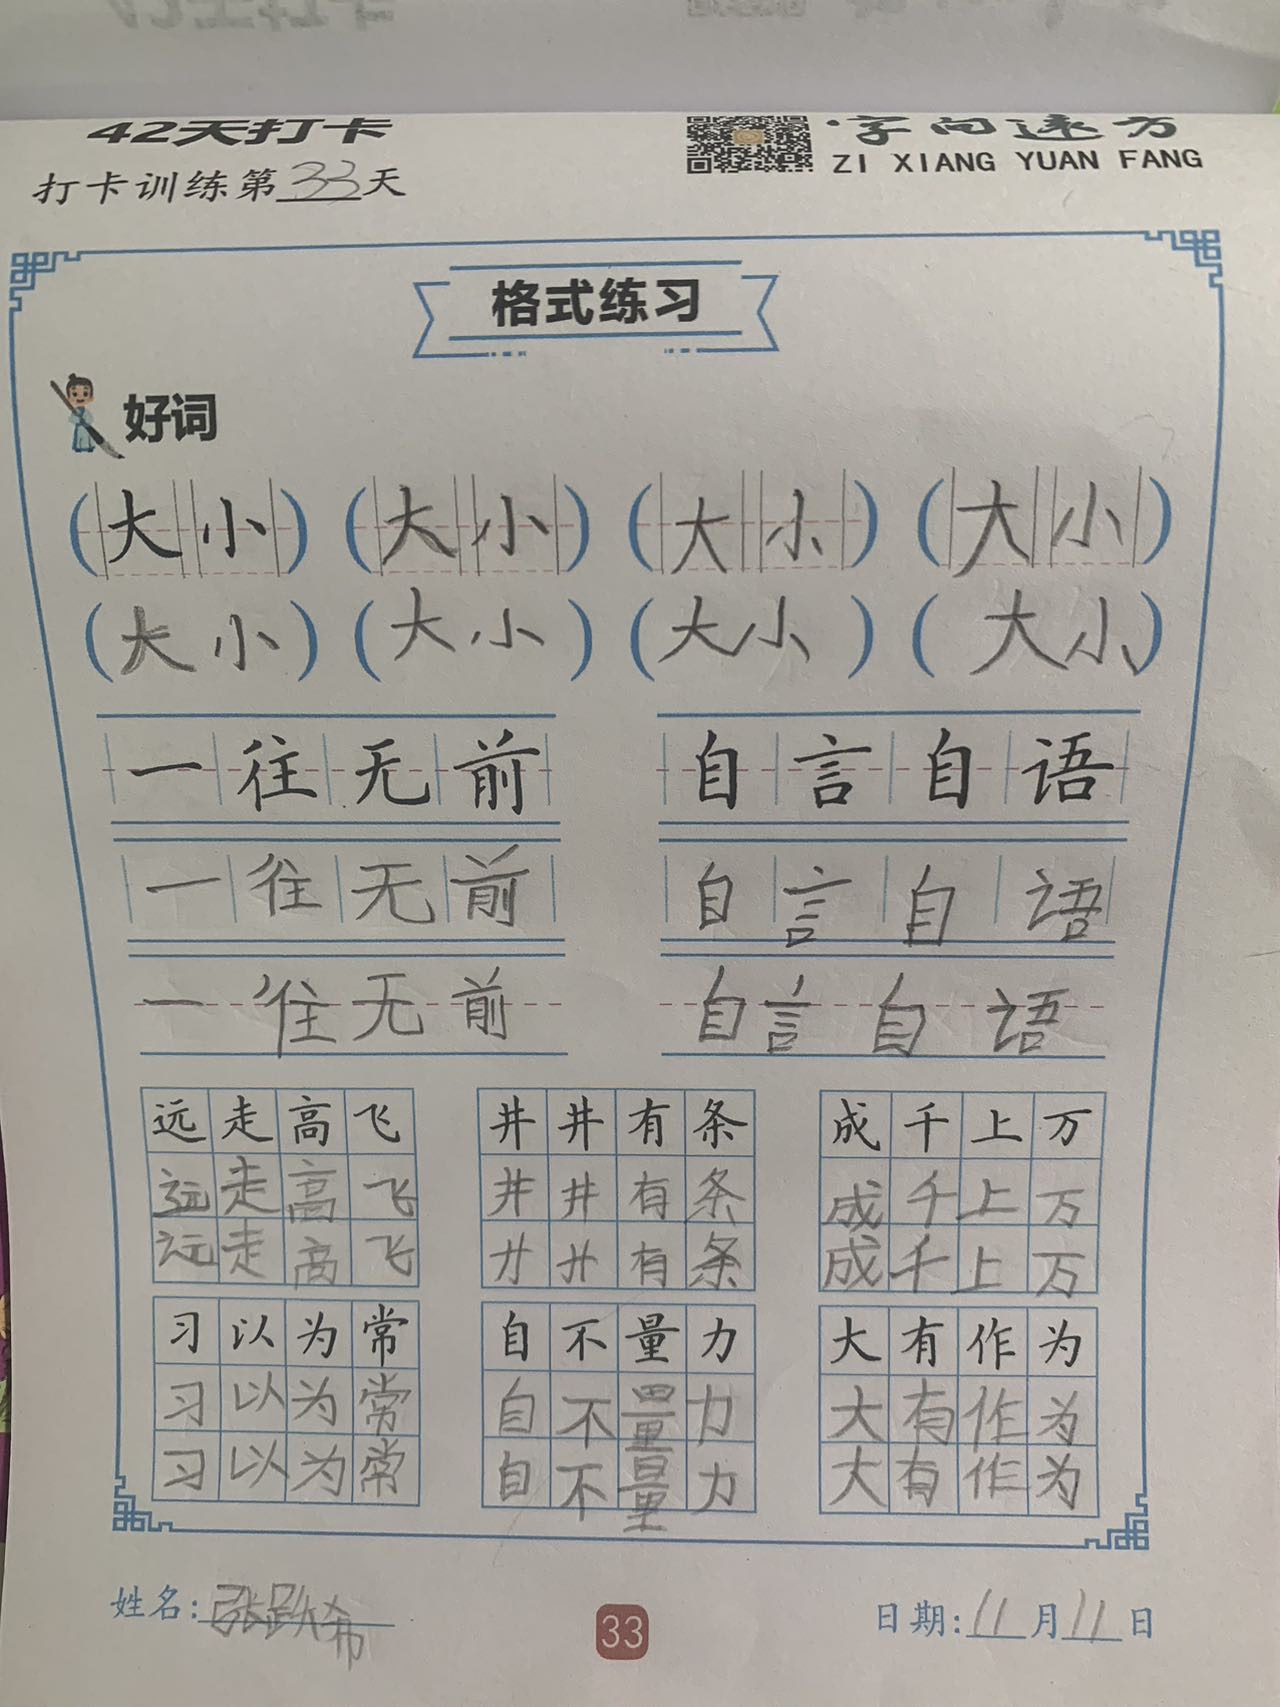 42天打卡
字向远方
ZI XIANG YUAN FANG
打卡训练第33天
格式练习
好词
(大小) (大小) (大小) (大小)
(大小) (大小) (大小) (大小)
一往无前 自言自语
一往无前 自言自语
一往无前 自言自语
远走高飞 井井有条 成千上万
远走高飞 井井有条 成千上万
远走高飞 井井有条 成千上万
习以为常 自不量力 大有作为
习以为常 自不量力 大有作为
习以为常 自不量力 大有作为
姓名:张跃希
33
日期:11月11日